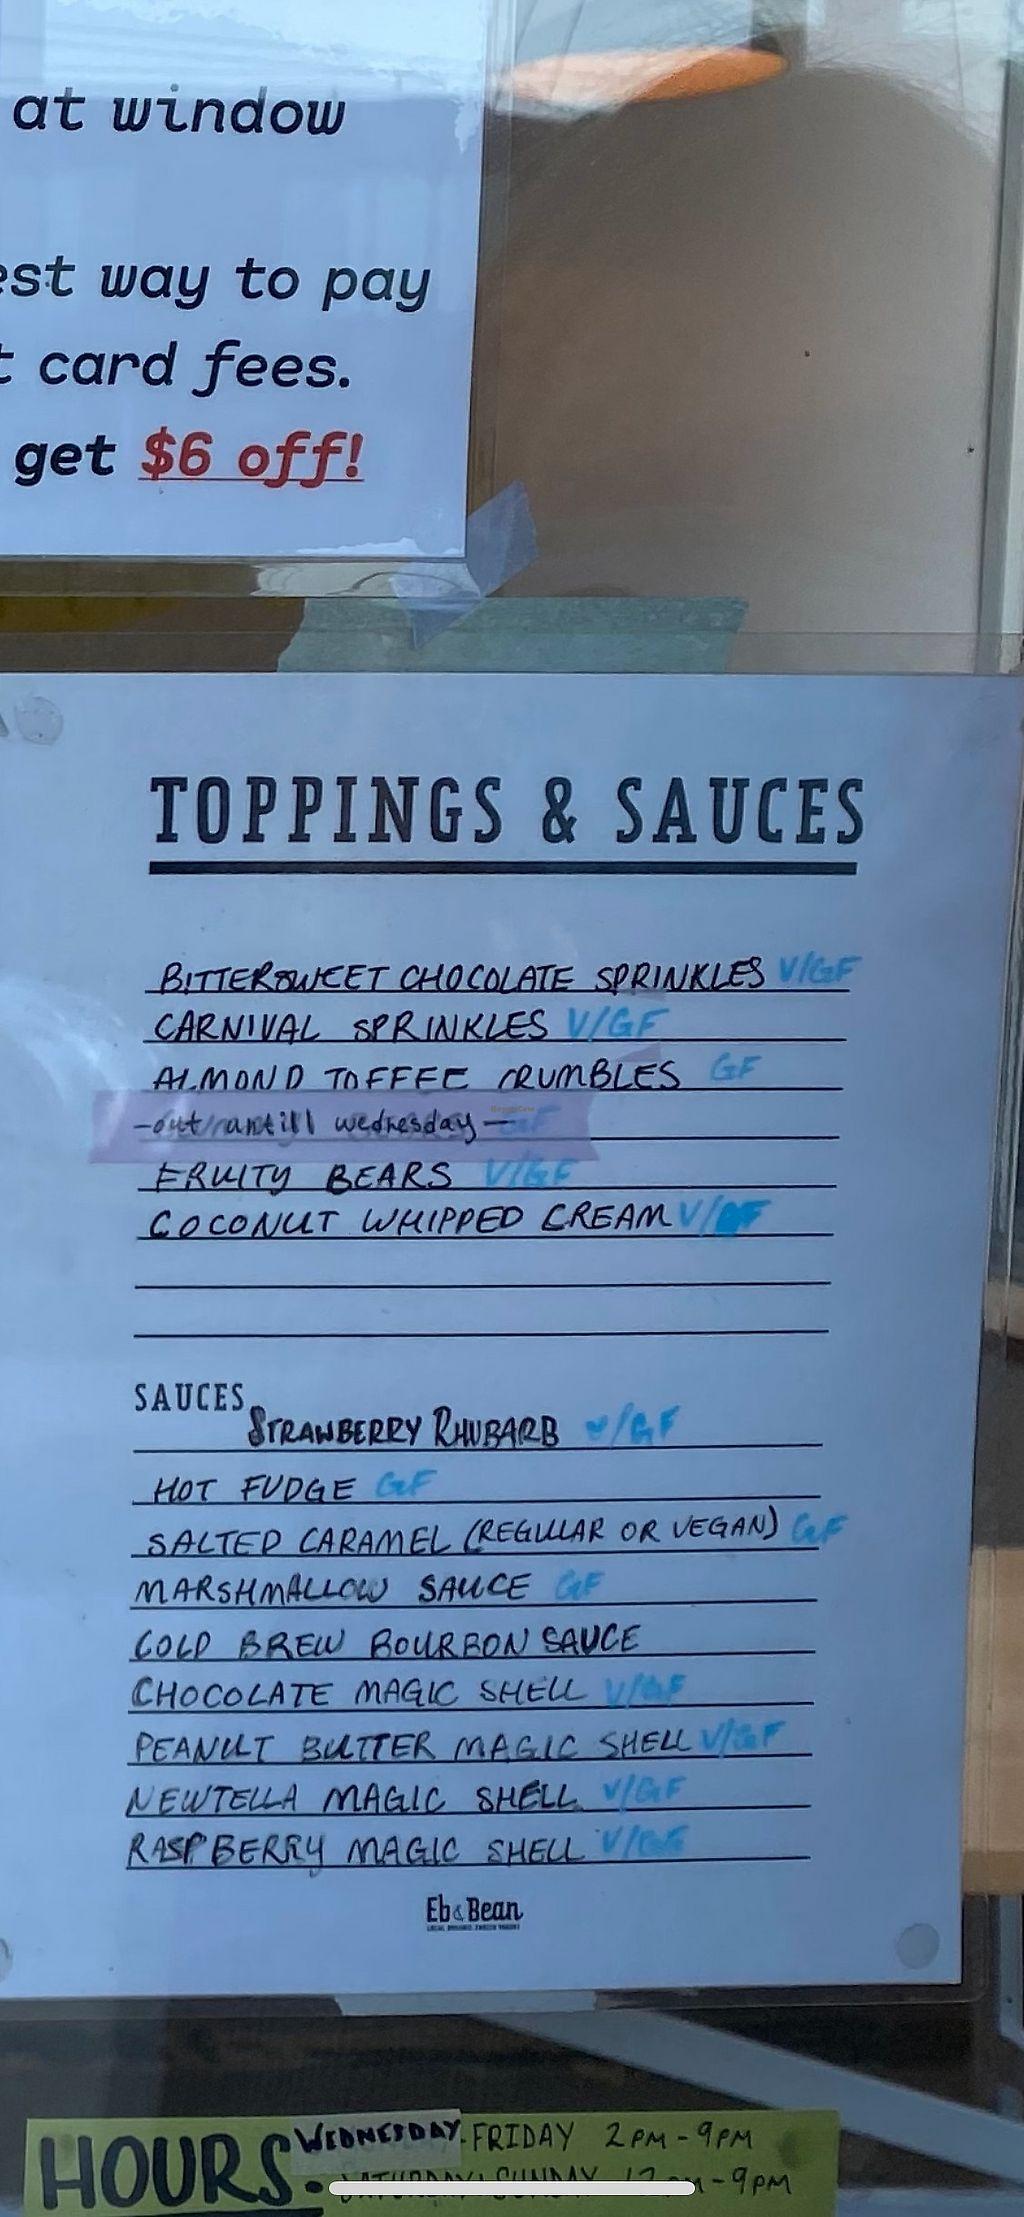 at window
est way to pay
t card fees.
get $6 off!
TOPPINGS & SAUCES
BITTERSWEET CHOCOLATE SPRINKLES V/GF
CARNIVAL SPRINKLES V/GF
ALMOND TOFFEE CRUMBLES GF
-out untill wednesday- GF
FRUITY BEARS V/GF
COCONUT WHIPPED CREAM V/GF
SAUCES
STRAWBERRY RHUBARB V/GF
HOT FUDGE GF
SALTED CARAMEL (REGULAR OR VEGAN) GF
MARSHMALLOW SAUCE GF
COLD BREW BOURBON SAUCE
CHOCOLATE MAGIC SHELL V/GF
PEANUT BUTTER MAGIC SHELL V/GF
NEWTELLA MAGIC SHELL V/GF
RASPBERRY MAGIC SHELL V/GF
Eb & Bean
HOURS: WEDNESDAY-FRIDAY 2PM-9PM
SATURDAY SUNDAY 12PM-9PM